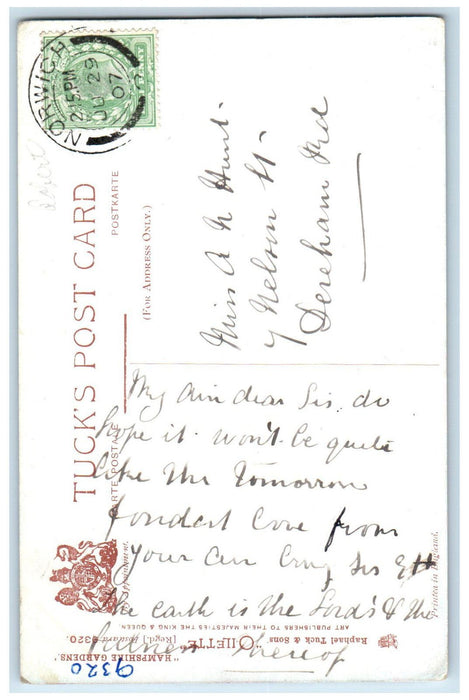 NORWICH
2.15PM
29
07
TUCK'S POST CARD
CARTE POSTALE
POSTKARTE
(FOR ADDRESS ONLY.)
Miss A N Hunt.
7 Nelson St.
Dereham Rd
My ain dear Sis. do
hope it won't be quite
like this tomorrow
fondest love from
your ain Sis
the earth is the Lord's & the
fulness thereof
Raphael Tuck & Sons' "OILETTE"
[Regd.] Postcard 9320.
"HAMPSHIRE GARDENS."
ART PUBLISHERS TO THEIR MAJESTIES THE KING & QUEEN
Printed in England.
9320